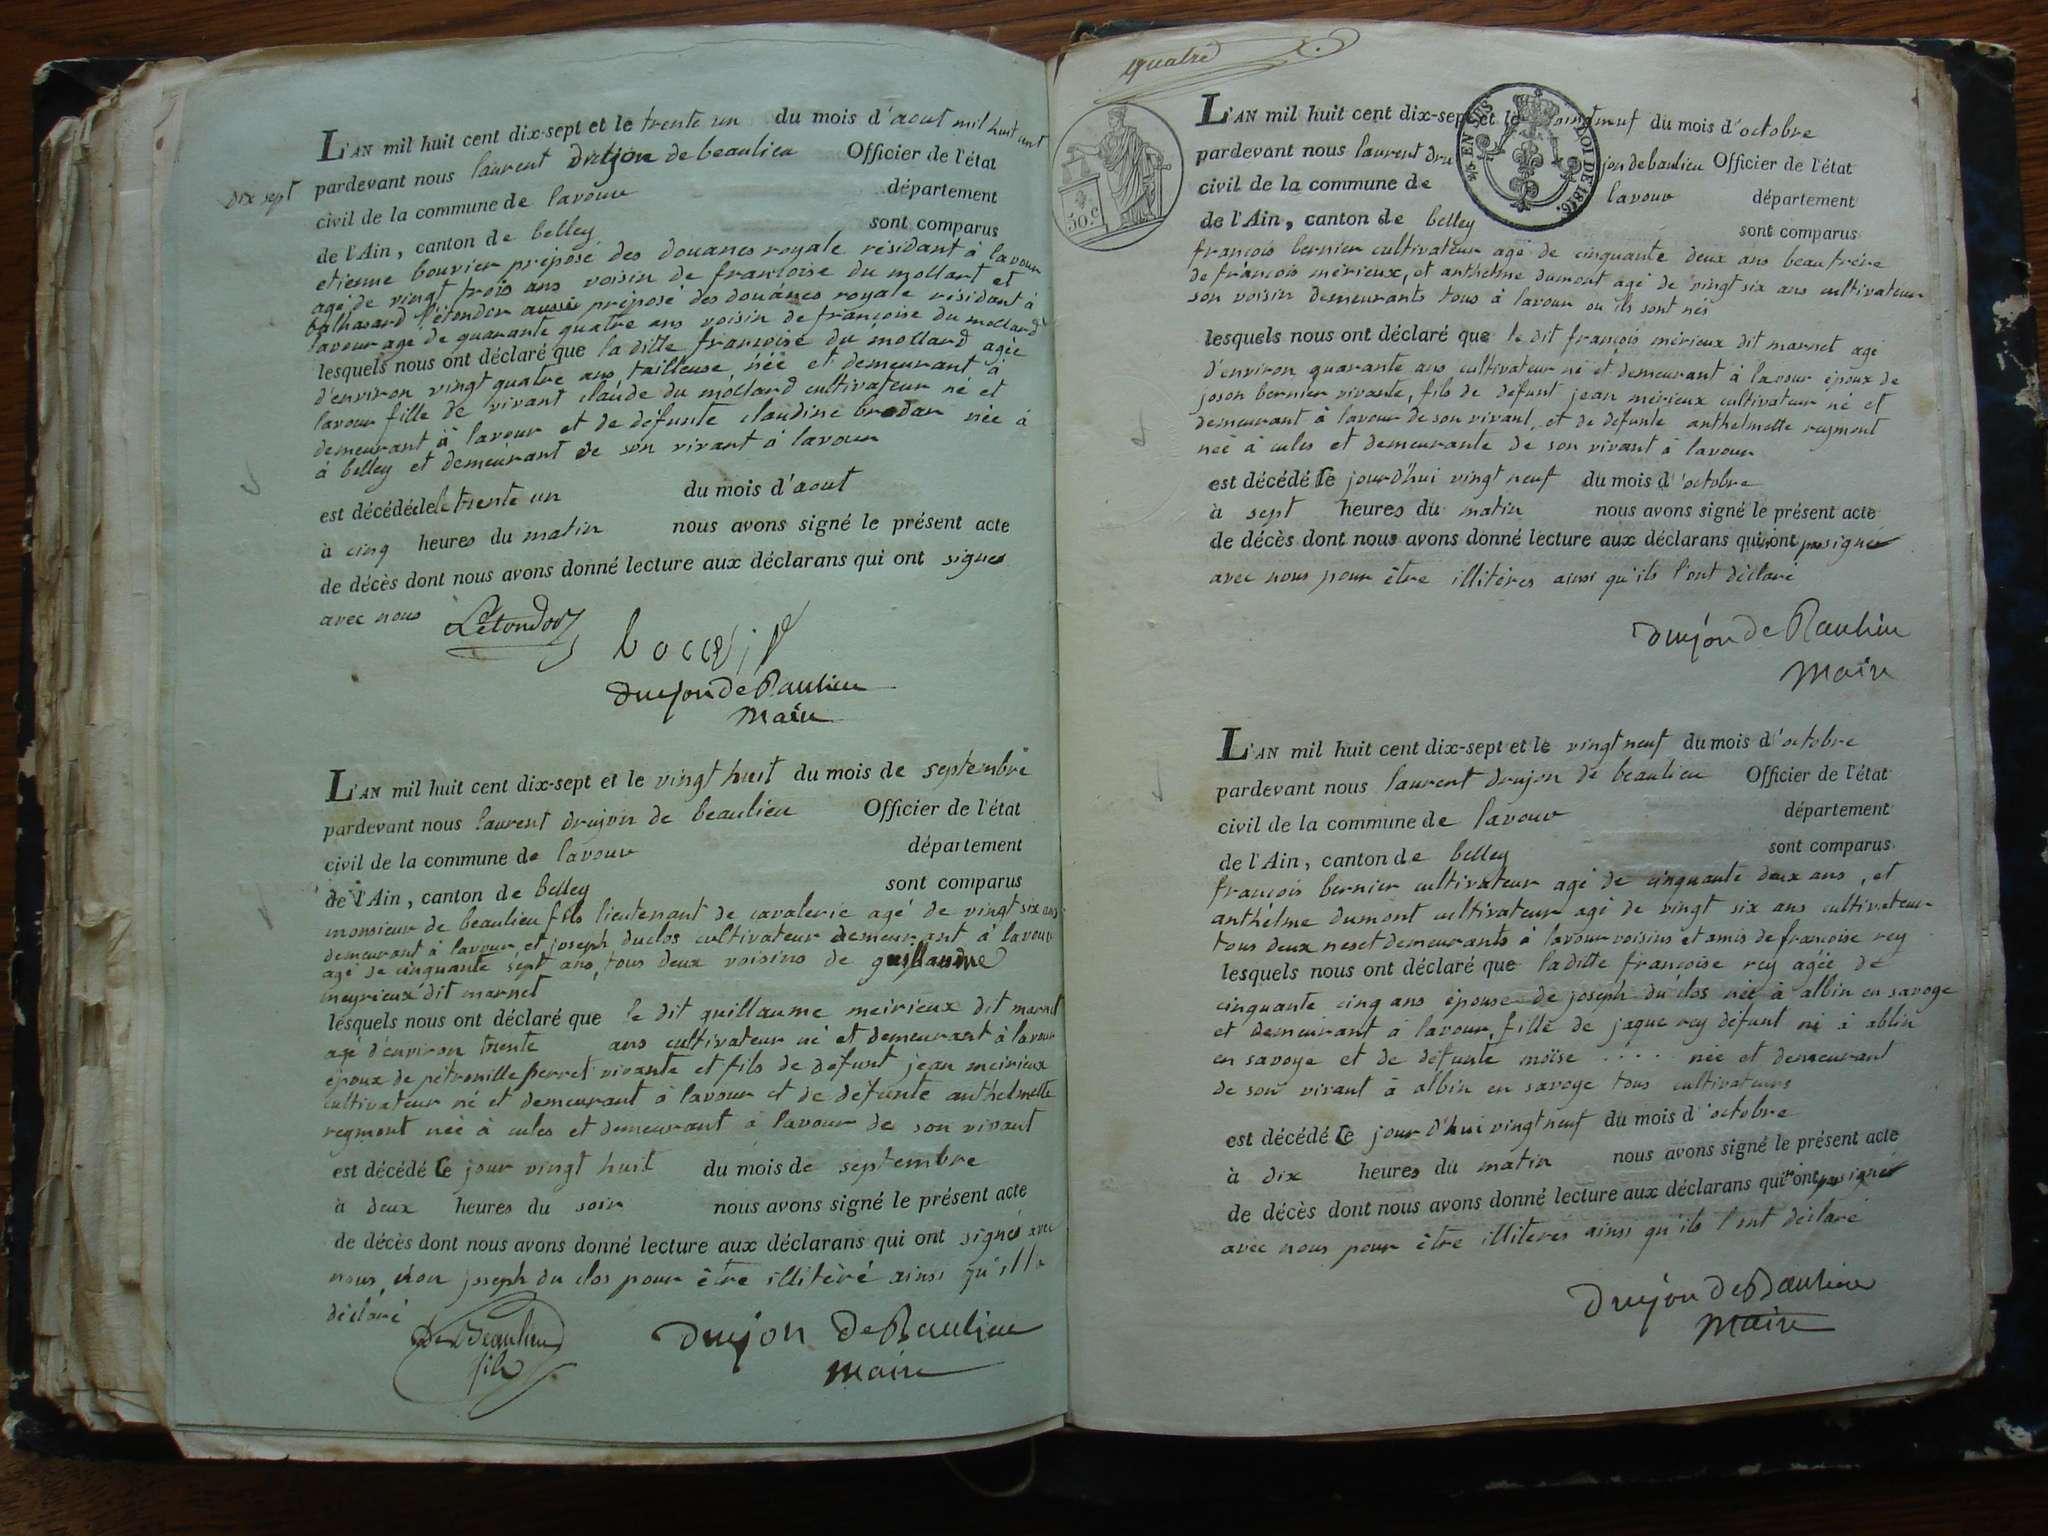 L'AN mil huit cent dix-sept et le trente un du mois d'aout mil huit cent
dix sept
pardevant nous laurent drujon de beaulieu Officier de l'état
civil de la commune de lavour département
de l'Ain, canton de belley sont comparus
etienne bouvier préposé des douanes royale résidant à lavour
agé de vingt trois ans voisin de francoise du mollart et
balthasard létondor aussi préposé des douanes royale résidant à
lavour agé de quarante quatre ans voisin de francoise du mollard
lesquels nous ont déclaré que la ditte francoise du mollard agée
d'environ vingt quatre ans tailleuse née et demeurant à
lavour fille de vivant claude du mollard cultivateur né et
demeurant à lavour et de défunte claudine brodar née à
à belley et demeurant de son vivant à lavour
est décédé le trente un du mois d'aout
à cinq heures du matin nous avons signé le présent acte
de décès dont nous avons donné lecture aux déclarans qui ont signés
avec nous Létondor
drujon de Beaulieu
maire
L'AN mil huit cent dix-sept et le vingt huit du mois de septembre
pardevant nous laurent drujon de beaulieu Officier de l'état
civil de la commune de lavour département
de l'Ain, canton de Belley sont comparus
monsieur de beaulieu fils lieutenant de cavalerie agé de vingt six ans
demeurant à lavour et joseph duclos cultivateur demeurant à lavour
agé de cinquante sept ans, tous deux voisins de guillaume
meyrieux dit marnet
lesquels nous ont déclaré que le dit guillaume meirieux dit marnet
agé d'environ trente ans cultivateur né et demeurant à lavour
époux de pétronille perret vivante et fils de défunt jean meirieux
cultivateur né et demeurant à lavour et de défunte anthelmette
reymont née à cules et demeurant à lavour de son vivant
est décédé le jour vingt huit du mois de septembre
à deux heures du soir nous avons signé le présent acte
de décès dont nous avons donné lecture aux déclarans qui ont signés avec
nous non joseph du clos pour être illitéré ainsi qu'il l'a
déclaré
De Beaulieu
fils
drujon de Beaulieu
maire
quatre
30. c
EN SUS
LOI DE 1816.
L'AN mil huit cent dix-sept et le vingt neuf du mois d'octobre
pardevant nous laurent drujon de beaulieu Officier de l'état
civil de la commune de lavour département
de l'Ain, canton de belley sont comparus
francois bernier cultivateur agé de cinquante deux ans beaufrére
de francois mérieux, et anthelme dumont agé de vingt six ans cultivateur
son voisin demeurants tous à lavour ou ils sont nés
lesquels nous ont déclaré que le dit francois mérieux dit marnet agé
d'environ quarante ans cultivateur né et demeurant à lavour époux de
joson bernier vivante, fils de défunt jean mérieux cultivateur né et
demeurant à lavour de son vivant, et de défunte anthelmette reymont
née à cules et demeurante de son vivant à lavour
est décédé le jourd'hui vingt neuf du mois d'octobre
à sept heures du matin nous avons signé le présent acte
de décès dont nous avons donné lecture aux déclarans qui n'ont pas signés
avec nous pour être illitéres ainsi qu'ils l'ont déclaré
drujon de Beaulieu
maire
L'AN mil huit cent dix-sept et le vingt neuf du mois d'octobre
pardevant nous laurent drujon de beaulieu Officier de l'état
civil de la commune de lavour département
de l'Ain, canton de belley sont comparus
francois bernier cultivateur agé de cinquante deux ans, et
anthelme dumont cultivateur agé de vingt six ans cultivateur
tous deux nes et demeurants à lavour voisins et amis de francoise rey
lesquels nous ont déclaré que la ditte francoise rey agée de
cinquante cinq ans épouse de joseph du clos née à albin en savoye
et demeurant à lavour, fille de jaque rey défunt né à ablin
en savoye et de défunte moïse . . . . . née et demeurant
de son vivant à albin en savoye tous cultivateurs
est décédé le jour d'hui vingt neuf du mois d'octobre
à dix heures du matin nous avons signé le présent acte
de décès dont nous avons donné lecture aux déclarans qui n'ont pas signés
avec nous pour être illiteres ainsi qu'ils l'ont déclaré
drujon de Beaulieu
maire